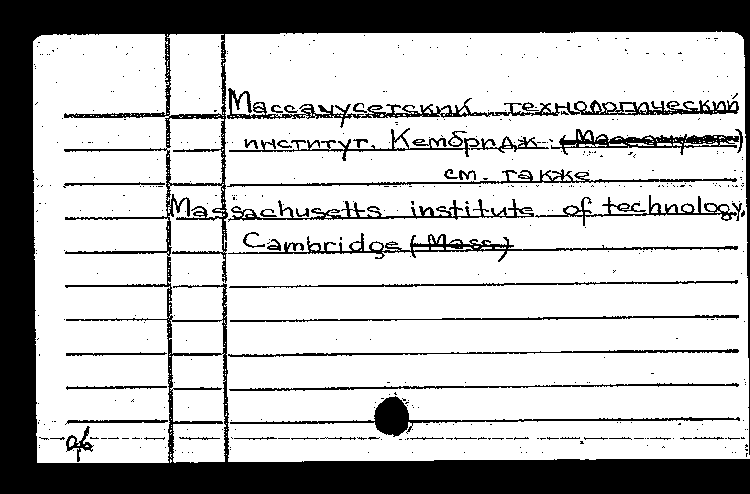 Массачусетский технологический
институт. Кембридж (Массачусетс)
см. также
Massachusetts institute of technology,
Cambridge (Mass.)